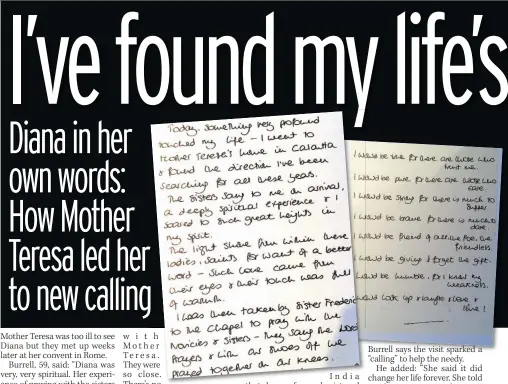 I've found my life's
Diana in her
own words:
How Mother
Teresa led her
to new calling
Today, something very profound
touched my life - I went to
Mother Teresa's home in Calcutta
& found the direction I've been
searching for all these years.
The Sisters sang to me on arrival,
a deeply spiritual experience & I
soared to such great heights in
my spirit.
The light shone from within these
ladies, saints for want of a better
word - such love came from
their eyes & their touch was full
of warmth.
I was then taken by Sister Frederick
to the chapel to pray with the
Novices & Sisters - they say the Lord's
Prayers & with our shoes off we
prayed together on our knees.
I would be true for there are those who
trust me.
I would be pure for there are those who
care.
I would be strong for there is much to
suffer
I would be brave for there is much to
dare.
I would be friend of all the foe, the
friendless
I would be giving & forget the gift.
I would be humble, for I know my
weakness.
I would look up & laugh & love &
live!
Mother Teresa was too ill to see
Diana but they met up weeks
later at her convent in Rome.
Burrell, 59, said: "Diana was
very, very spiritual. Her experi-
ence of praying with the sisters
with
Mother
Teresa.
They were
so close.
There's no
India
Burrell says the visit sparked a
"calling" to help the needy.
He added: "She said it did
change her life forever. She told